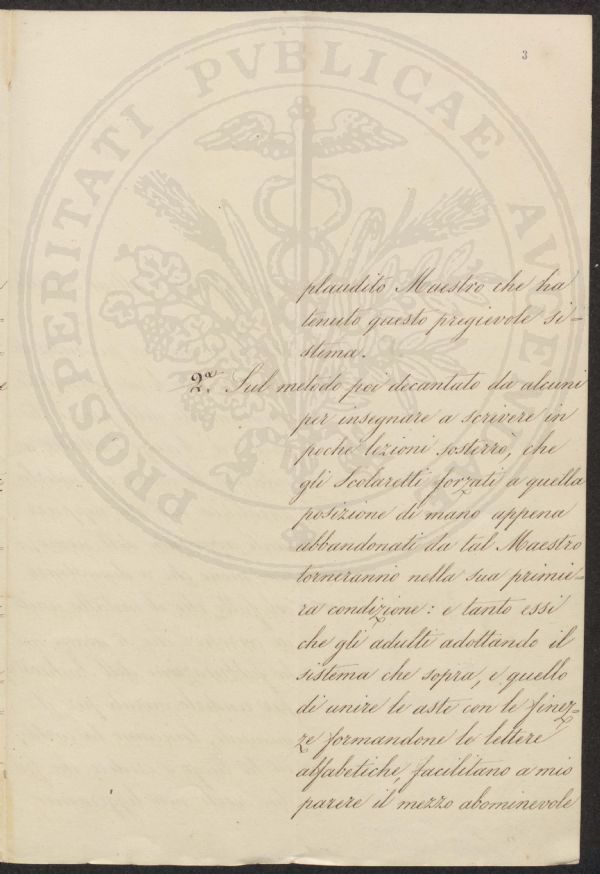 3
plaudito Maestro che ha
tenuto questo pregievole si=
stema.
2.ª Sul metodo poi decantato da alcuni
per insegnare a scrivere in
poche lezioni sosterrò, che
gli Scolaretti forzati a quella
posizione di mano appena
abbandonati da tal Maestro
torneranno nella sua primie=
ra condizione: e tanto essi
che gli adulti adottando il
sistema che sopra, e quello
di unire le aste con le finez=
ze formandone le lettere
alfabetiche, facilitano a mio
parere il mezzo abominevole
PROSPERITATI PVBLICAE